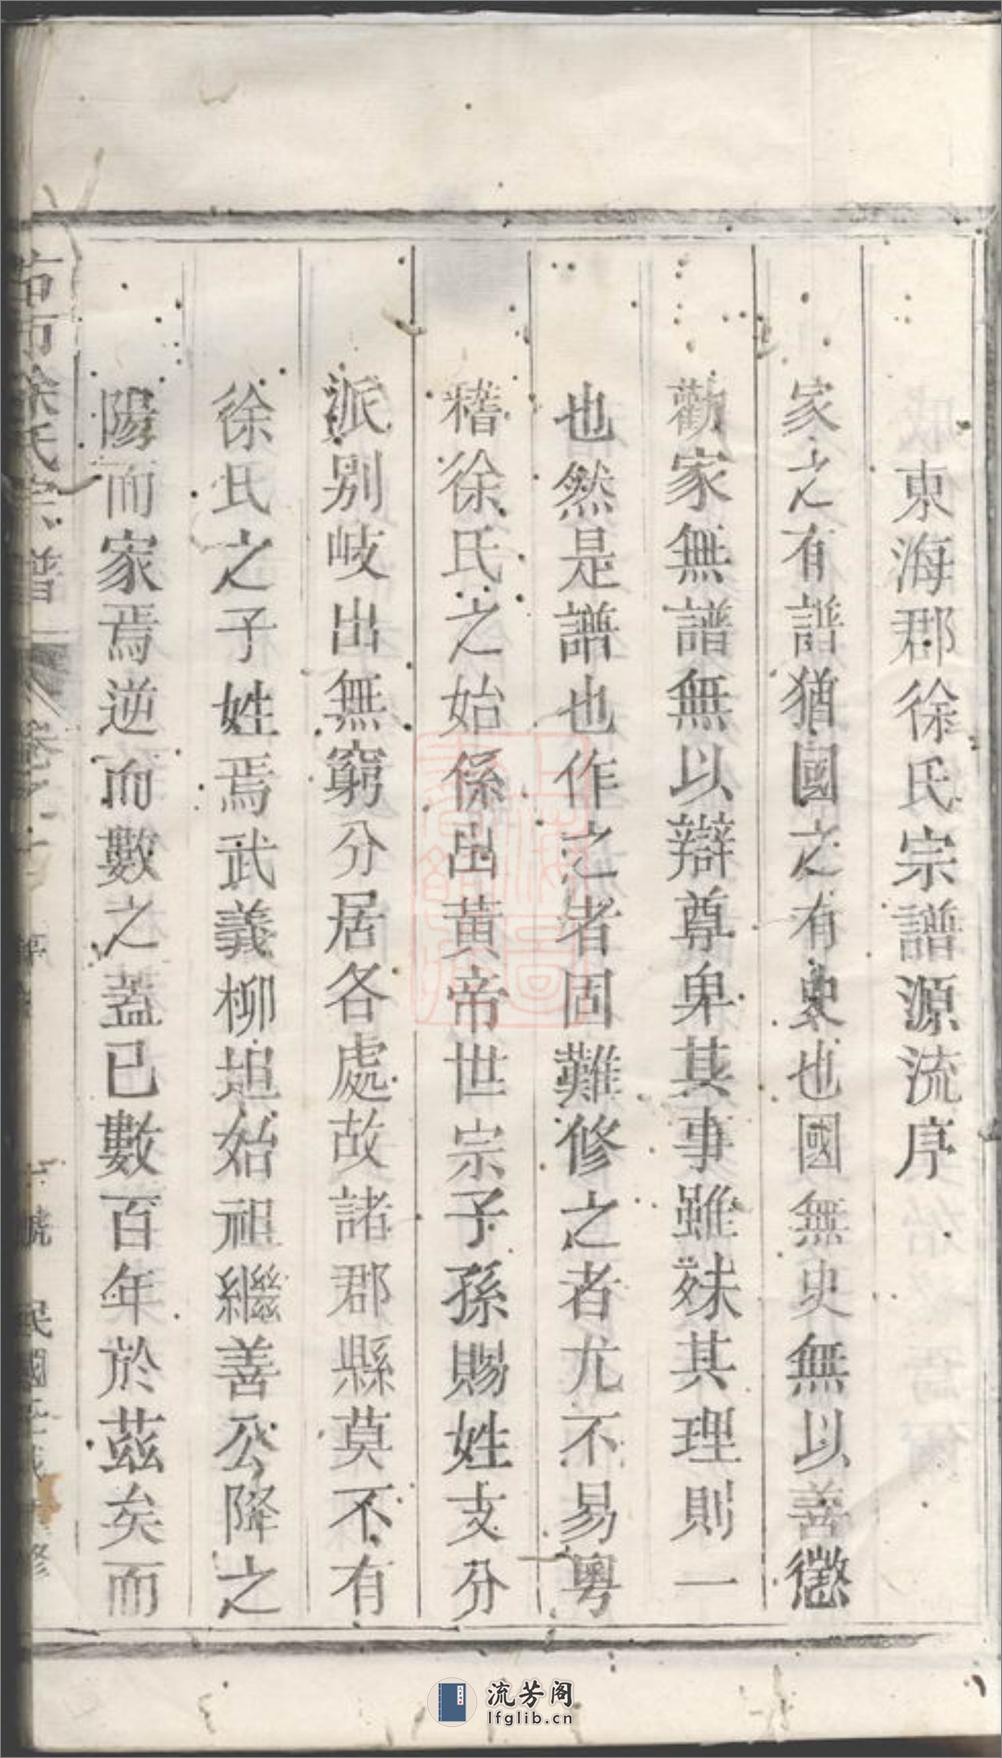 東海郡徐氏宗譜源流序
家之有譜猶國之有史也國無史無以善懲
勸家無譜無以辯尊卑其事雖妹其理則一
也然是譜也作之者固難修之者尤不易粵
稽徐氏之始係出黃帝世宗子孫賜姓支分
派别岐出無窮分居各處故諸郡縣莫不有
徐氏之子姓焉武義柳坦始祖繼善公降之
陽而家焉逆而數之蓋已數百年於茲矣而
徐氏宗譜
民國
修
流芳阁
lfglib.cn